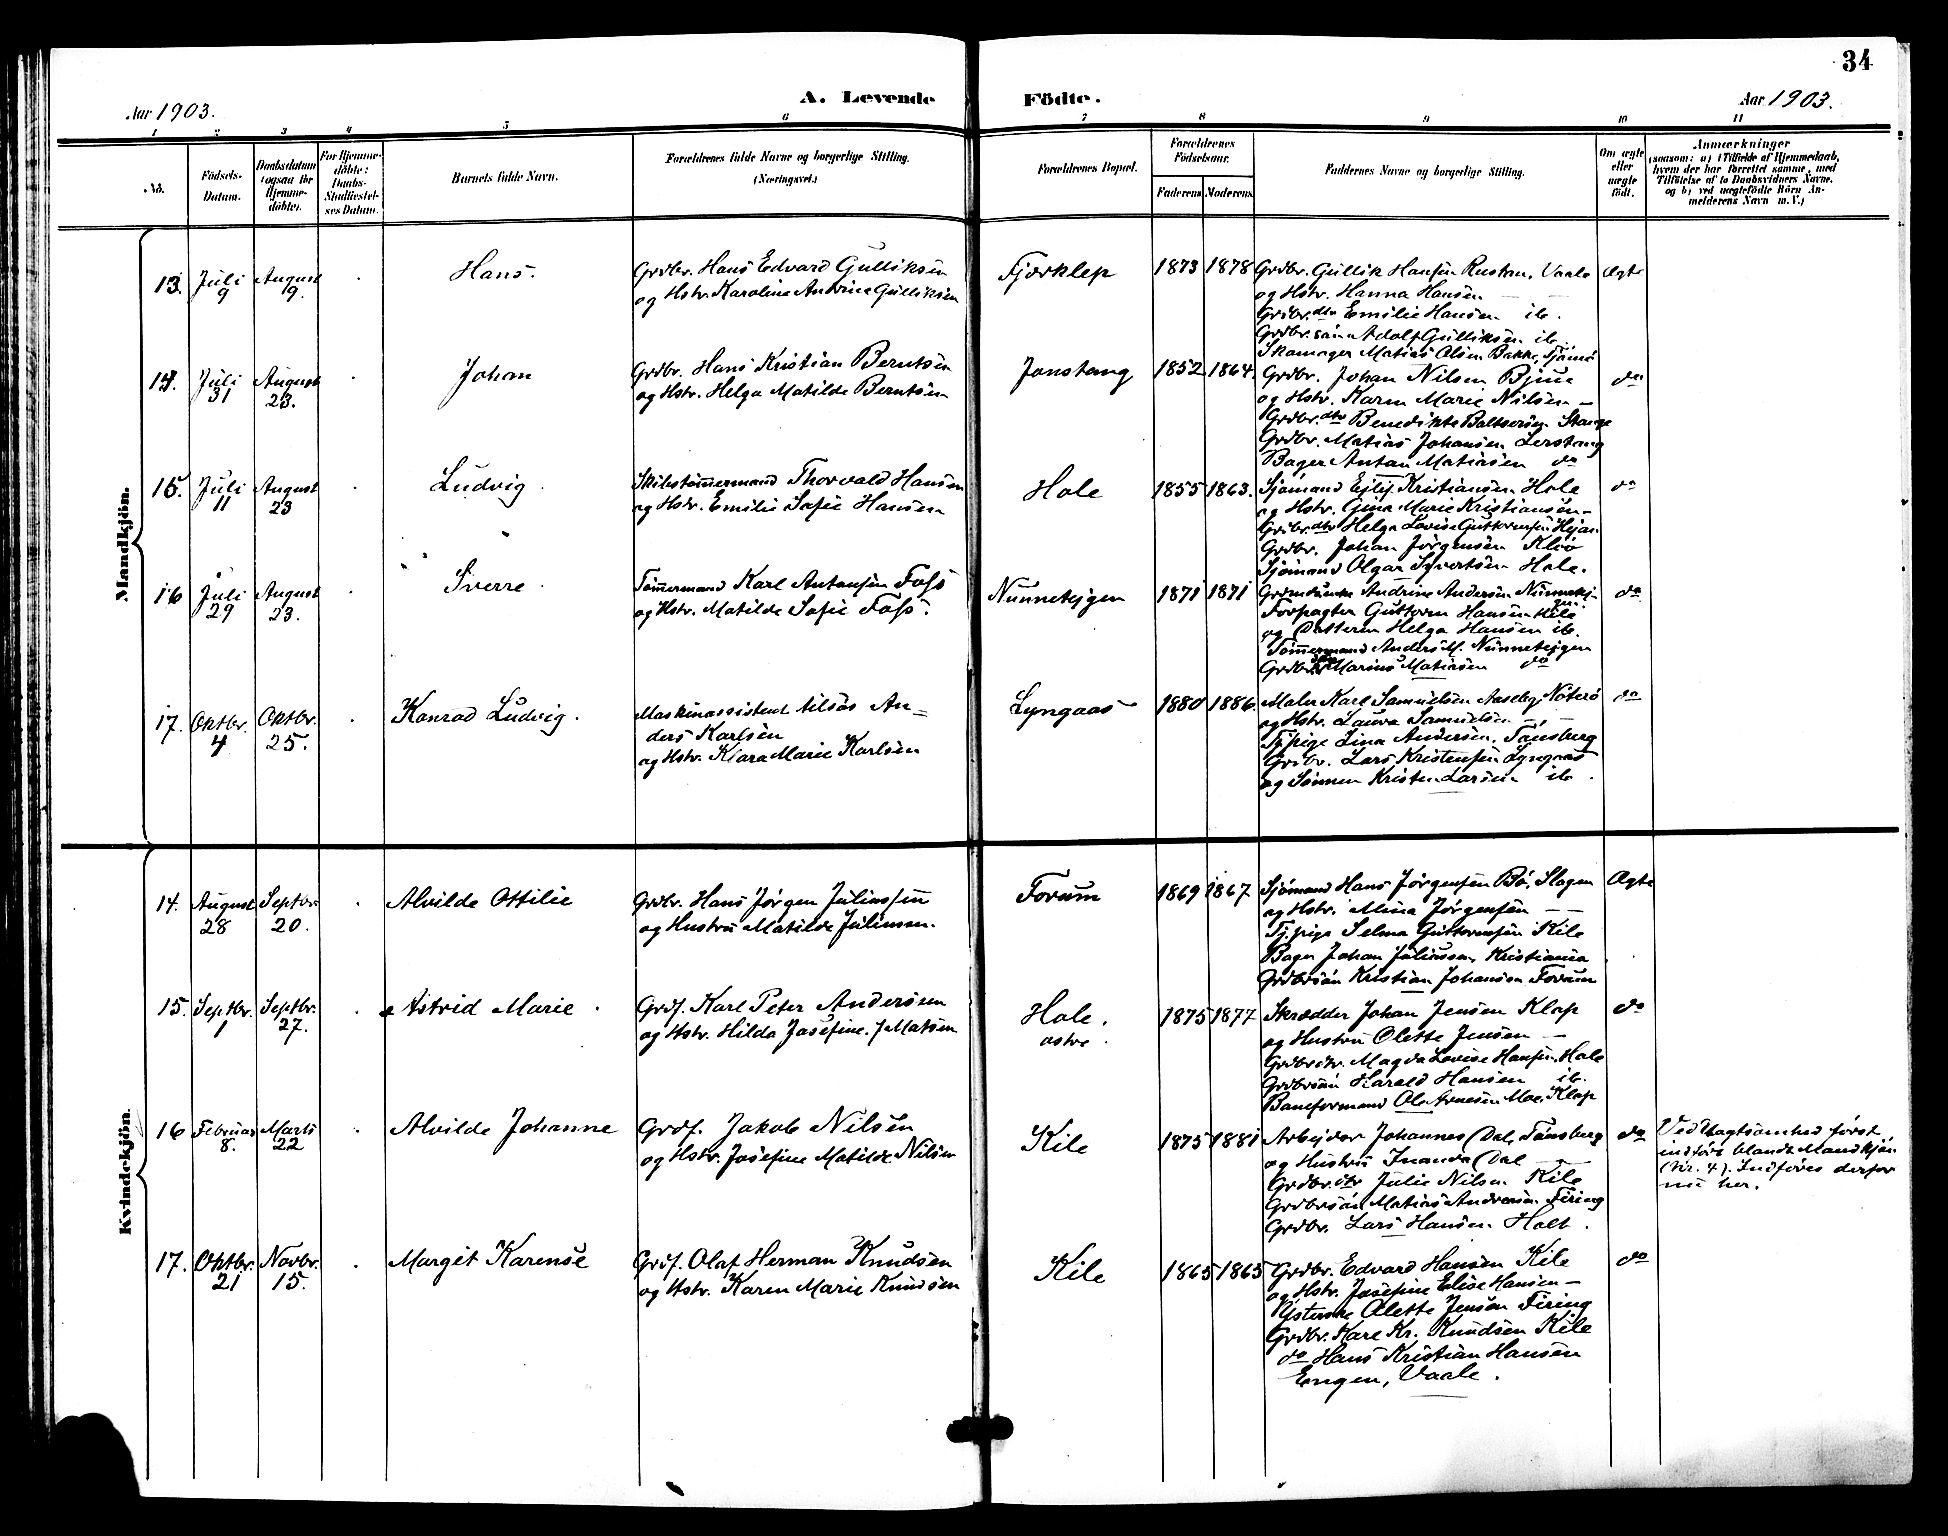 34
Aar 1903.
A. Levende Fødte.
Aar 1903.
1 2 3 4 5 6 7 8 9 10 11
No.
Fødsels-Datum.
Daabsdatum (ogsaa for Hjemmedøbte).
For Hjemmedøbte: Daabs-Stadfæstelses Datum.
Barnets fulde Navn.
Forældrenes fulde Navne og borgerlige Stilling.
(Næringsvei.)
Forældrenes Bopæl.
Forældrenes Fødselsaar.
Faderens
Moderens
Faddernes Navne og borgerlige Stilling.
Om ægte eller uægte født.
Anmærkninger
(saasom: a) i Tilfælde af Hjemmedaab,
hvem der har forrettet samme, med
Tilføielse af to Daabsvidners Navne,
og b) ved uægtefødte Børn An-
melderens Navn m. V.)
Mandkjön.
13. Juli 9 August 9. Hans.
Grdbr. Hans Edvard Gulliksen
og Hstr. Karoline Andrine Gulliksen
Fjærklep 1873 1878
Grdbr. Gullik Hansen Rustan, Vaale
og Hstr. Hanna Hansen — —
Grdbr.dtr Emilie Hansen ib.
Grdbr.sön Adolf Gulliksen ib.
Skomager Matias Olsen Bakke, Tjömö
Ægte
14. Juli 31 August 23. Johan
Grdbr. Hans Kristian Berntsen
og Hstr. Helga Matilde Berntsen
Jonstang 1852 1864.
Grdbr. Johan Nilsen Bjune
og Hstr. Karen Marie Nilsen —
Grdbr.dtr Benedikte Baltsersen Stange
Grdbr. Matias Johansen Lerstang
Bager Antan Matiasen do
do
15. Juli 11 August 23 Ludvig.
Skibstömmermand Thorvald Hansen
og Hstr. Emilie Sofie Hansen
Hole 1855 1863.
Sjömand Ejlef Kristiansen Hole
og Hstr. Gina Marie Kristiansen —
Grdbr.dtr Helga Lovise Guttormsen
Grdbr. Johan Jörgensen
Sjömand Olgar Syvertsen Hole.
do
16 Juli 29 August 23. Sverre.
Tömmermand Karl Antonsen Foss
og Hstr. Matilde Sofie Foss.
Nunnetejgen 1871 1871
Andrine Andersen Nunnetej-
gen
Forpagter Guttorm Hansen Kile
og Datteren Helga Hansen ib.
Tömmermand Anders M. Nunnetejgen
Grdbr.sön Marius Matiasen do
do
17. Oktbr. 4 Oktbr. 25. Konrad Ludvig.
Maskinassistent tilsös An-
ders Karlsen
og Hstr. Klara Marie Karlsen
Lyngaas 1880 1886.
Maler Karl Samuelsen Aaseby, Nöterö
og Hstr. Laura Samuelsen — —
Tj.pige Lina Andersen, Tönsberg
Grdbr. Lars Kristensen Lyngaas
og Sönnen Kristen Larsen ib.
do
Kvindekjön.
14. August 28 Septbr. 20. Alvilde Ottilie
Grdbr. Hans Jörgen Juliussen
og Hustru Matilde Juliussen.
Forum 1869 1867
Sjömand Hans Jörgensen Bö, Slagen
og Hstr. Mina Jörgensen — —
Tj.pige Selma Guttormsen Kile
Bager Johan Juliussen, Kristiania
Grdbrsön Kristian Johansen Forum
Ægte
15. Septbr. 1 Septbr. 27. Astrid Marie.
Grdf. Karl Peter Andersen
og Hstr. Hilda Josefine f. Matsen
Hole, östre. 1875 1877
Skrædder Johan Jensen Klop
og Hustru Olette Jensen —
Grdbrdtr. Magda Lovise Hansen, Hole
Grdbrsön Harald Hansen ib.
Baneformand Ole Arnesen Moe, Klop
do
16 Februar 8. Marts 22 Alvilde Johanne
Grdf. Jakob Nilsen
og Hstr. Josefine Matilde Nilsen
Kile 1875 1881
Arbejder Johannes Dal, Tönsberg
og Hustru Inanda Dal —
Grdbr.dtr Julie Nilsen Kile
Grdbrsön Matias Andersen Firing
Grdbr. Lars Hansen Holt.
do
Ved Uagtsomhed först
indfört blandt Mandkjön
(Nr. 4). Indföres derfor
nu her.
17. Oktbr. 21 Novbr. 15. Margit Karense
Grdf. Olaf Herman Knudsen
og Hstr. Karen Marie Knudsen
Kile 1865 1865
Grdbr. Edvard Hansen Kile
og Hstr. Josefine Elise Hansen —
Olette Jensen Firing
Grdbr. Karl Kr. Knudsen Kile
do Hans Kristian Hansen
Engen, Vaale.
do